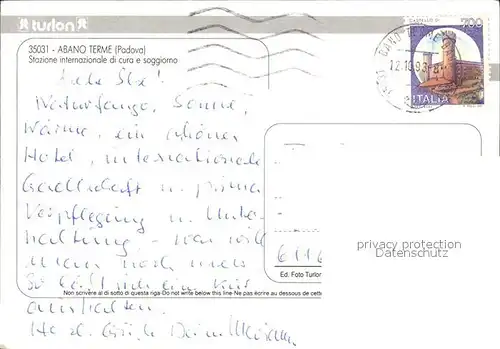 turlon
35031 - ABANO TERME (Padova)
Stazione internazionale di cura e soggiorno
700
ITALIA
12.10.93-8
Naturfango, Sonne,
Wärme, ein schönes
Hotel, internationale
Gesellschaft u. prima
Verpflegung u. Unter-
haltung - was will
man noch mehr
So läßt sich ein
aushalten.
Herzl. Dein
6116
privacy protection
Datenschutz
Ed. Foto Turlon
Non scrivere al di sotto di questa riga-Do not write below this line-Ne pas écrire au dessous de cette